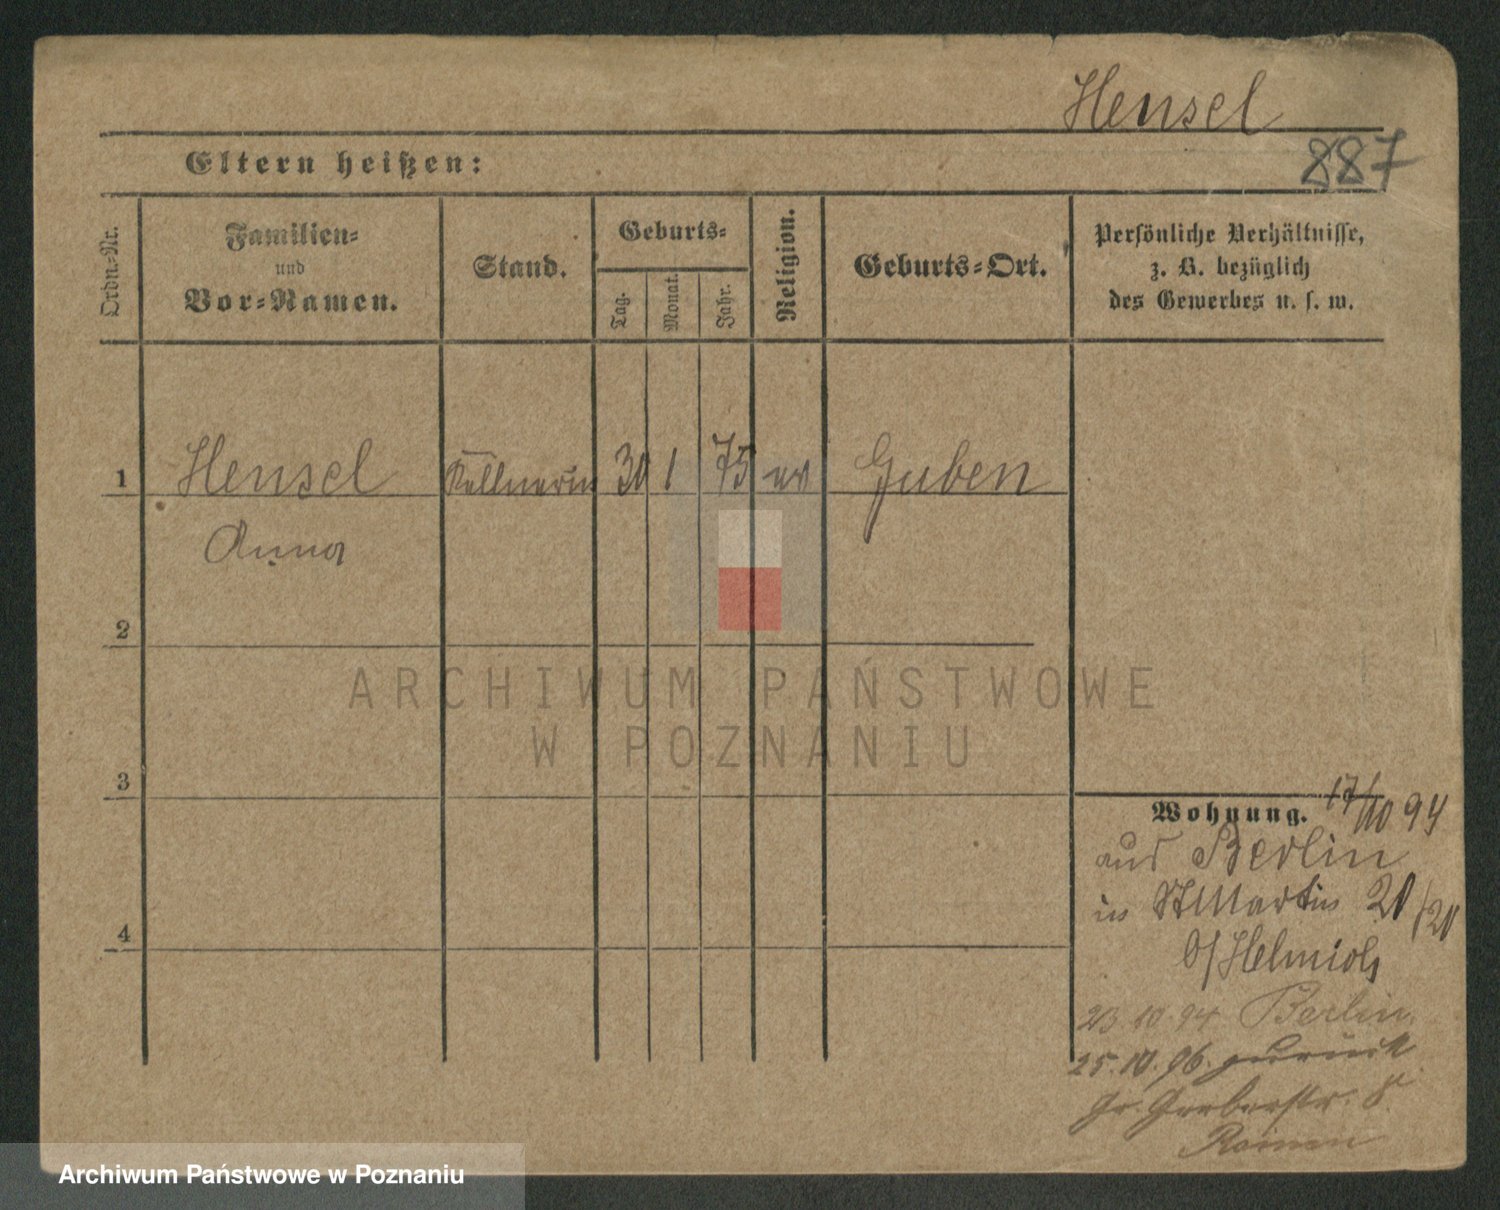 Hensel
Eltern heißen:
887
Ordn.-Nr.
Familien-
und
Vor-Namen.
Stand.
Geburts-
Tag.
Monat.
Jahr.
Religion.
Geburts-Ort.
Persönliche Verhältnisse,
z. B. bezüglich
des Gewerbes u. s. w.
1
Hensel
Kellnerin
30
1
75
ev
Guben
Anna
2
ARCHIWUM PAŃSTWOWE
W POZNANIU
3
Wohnung.
17/10 94
aus Berlin
in St Martin 20/20
b/Helmich
23.10.94 Berlin
25.10.96. zurück
Gr. Gerberstr. 8
4
Archiwum Państwowe w Poznaniu